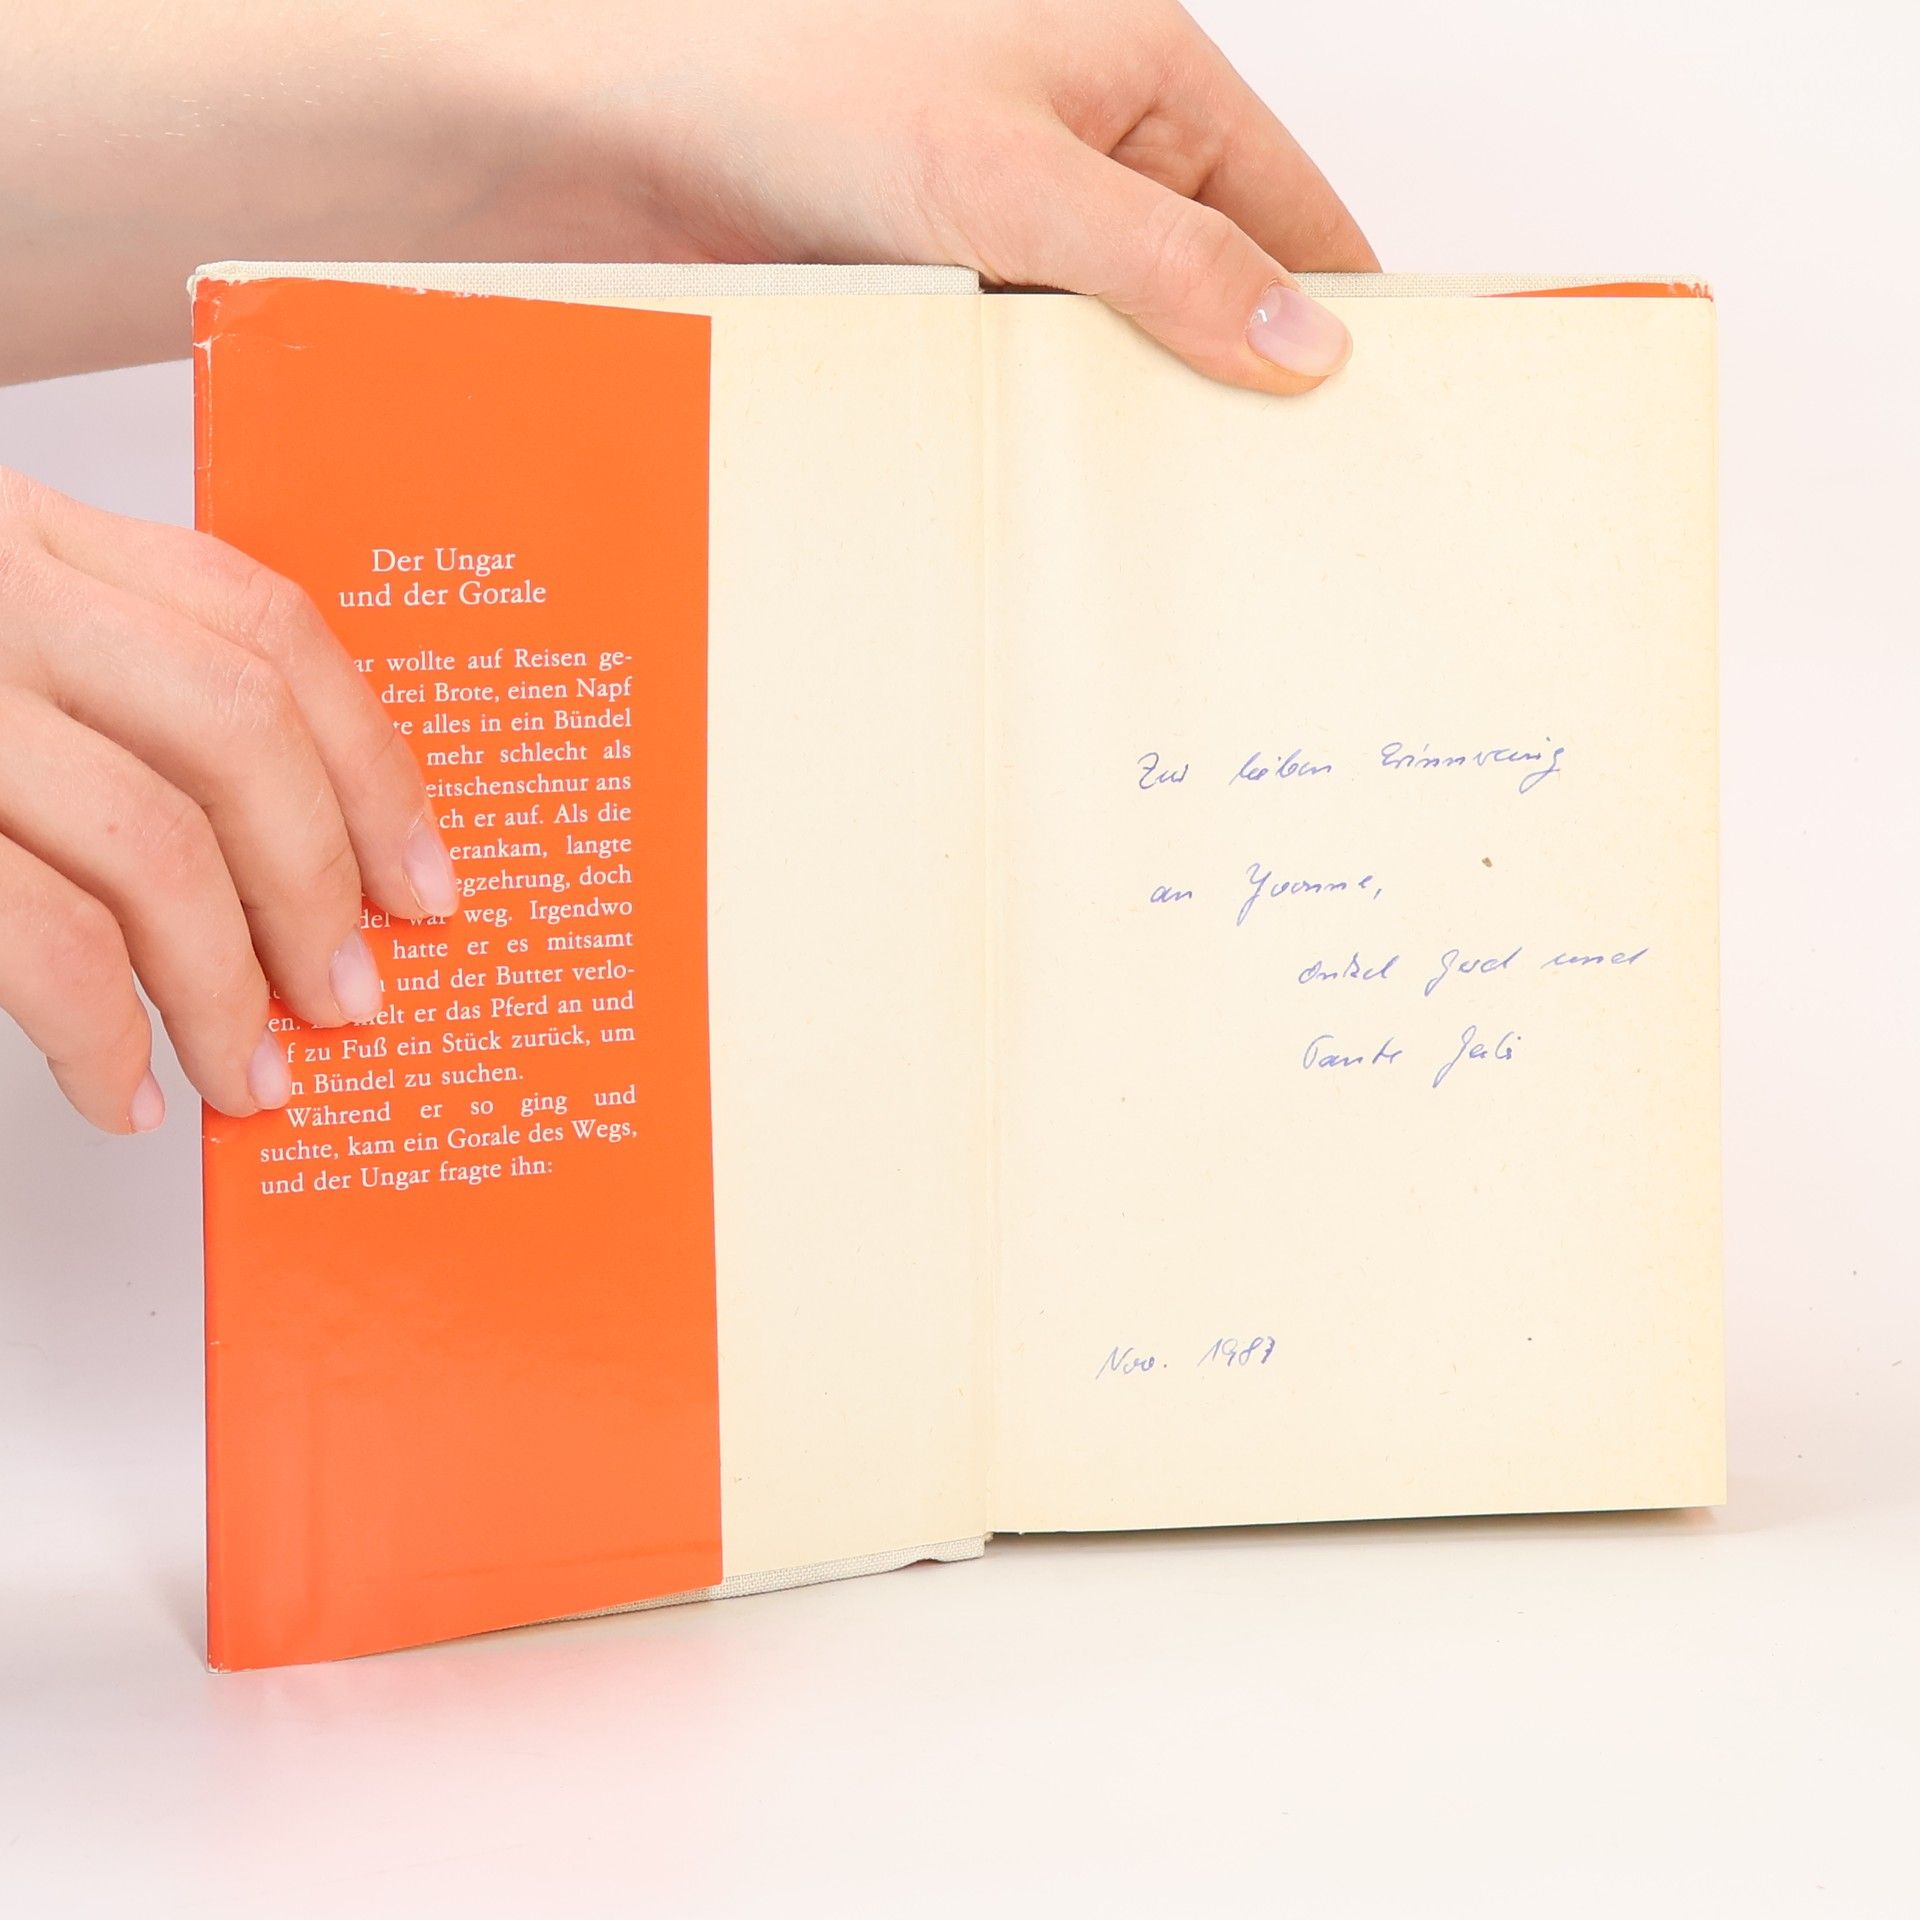 Der Ungar
und der Gorale
ar wollte auf Reisen ge-
drei Brote, einen Napf
te alles in ein Bündel
mehr schlecht als
eitschenschnur ans
ch er auf. Als die
erankam, langte
egzehrung, doch
del war weg. Irgendwo
hatte er es mitsamt
und der Butter verlo-
en. melt er das Pferd an und
f zu Fuß ein Stück zurück, um
n Bündel zu suchen.
Während er so ging und
suchte, kam ein Gorale des Wegs,
und der Ungar fragte ihn:
Zur lieben Erinnerung
an Yvonne,
Onkel und
Tante
Nov. 1987